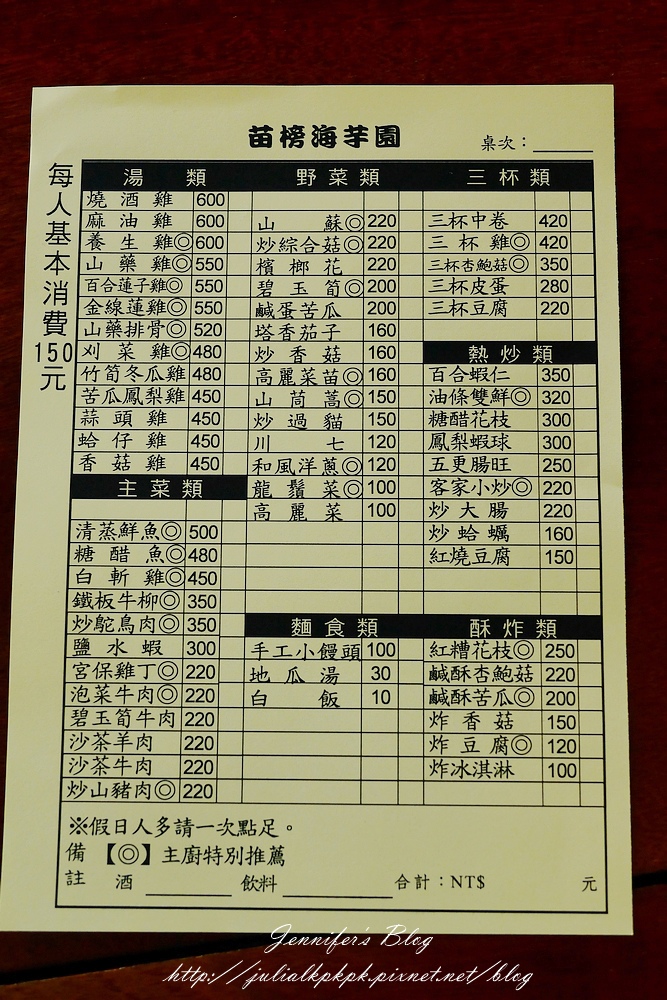 苗榜海芋園
桌次：
每人基本消費150元
湯類
燒酒雞 600
麻油雞 600
養生雞◎ 600
山藥雞◎ 550
百合蓮子雞◎ 550
金線蓮雞◎ 550
山藥排骨◎ 520
刈菜雞◎ 480
竹筍冬瓜雞 480
苦瓜鳳梨雞 450
蒜頭雞 450
蛤仔雞 450
香菇雞 450
主菜類
清蒸鮮魚◎ 500
糖醋魚◎ 480
白斬雞◎ 450
鐵板牛柳◎ 350
炒鴕鳥肉◎ 350
鹽水蝦 300
宮保雞丁◎ 220
泡菜牛肉◎ 220
碧玉筍牛肉 220
沙茶羊肉 220
沙茶牛肉 220
炒山豬肉◎ 220
野菜類
山蘇◎ 220
炒綜合菇◎ 220
檳榔花 220
碧玉筍◎ 200
鹹蛋苦瓜 200
塔香茄子 160
炒香菇 160
高麗菜苗◎ 160
山茼蒿◎ 150
炒過貓 150
川七 120
和風洋蔥◎ 120
龍鬚菜◎ 100
高麗菜 100
麵食類
手工小饅頭 100
地瓜湯 30
白飯 10
三杯類
三杯中卷 420
三杯雞◎ 420
三杯杏鮑菇◎ 350
三杯皮蛋 280
三杯豆腐 220
熱炒類
百合蝦仁 350
油條雙鮮◎ 320
糖醋花枝 300
鳳梨蝦球 300
五更腸旺 250
客家小炒◎ 220
炒大腸 220
炒蛤蠣 160
紅燒豆腐 150
酥炸類
紅糟花枝◎ 250
鹹酥杏鮑菇 220
鹹酥苦瓜◎ 200
炸香菇 150
炸豆腐◎ 120
炸冰淇淋 100
※假日人多請一次點足。
備註【◎】主廚特別推薦
酒 飲料 合計：NT$ 元
Jennifer's Blog
http://julialkpkpk.pixnet.net/blog